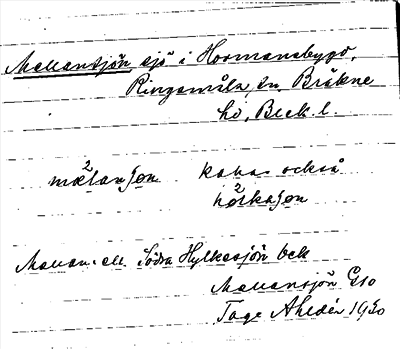 Mellansjön sjö i Hormanabygd,
Ringamåla sn, Bräkne
hd, Blek. l.
mælanʃøn kallas också
hølkaʃøn
Mellan. el. Södra Hylkesjön bek
Mellansjön Gso
Tage Ahldén 1930